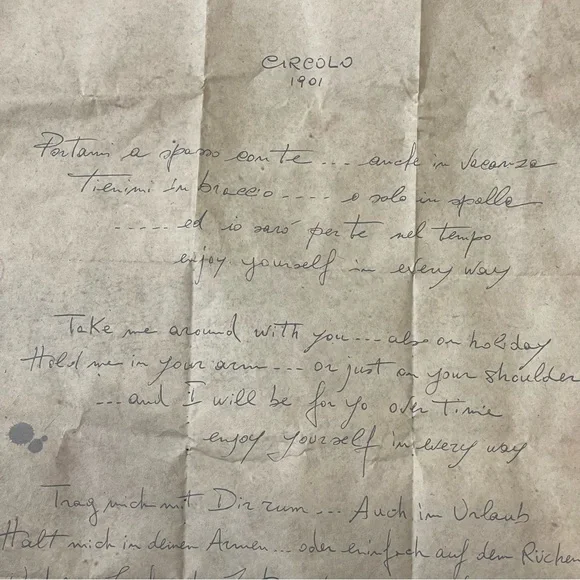 CIRCOLO
1901
Portami a spasso con te.... anche in vacanza
Tienimi in braccio..... o solo in spalla
..... ed io sarò per te nel tempo
enjoy yourself in every way
Take me around with you.... also on holiday
Hold me in your arm.... or just on your shoulder
...and I will be for yo over Time
enjoy yourself in every way
Trag mich mit Dir rum... Auch im Urlaub
Halt mich in deinen Armen... oder einfach auf dem Rücken